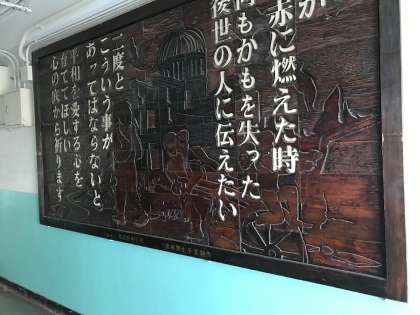 が
赤に燃えた時
何もかもを失った
後世の人に伝えたい
二度と
こういう事が
あってはならないと
平和を愛する心を
育ててほしい
心の底から祈ります